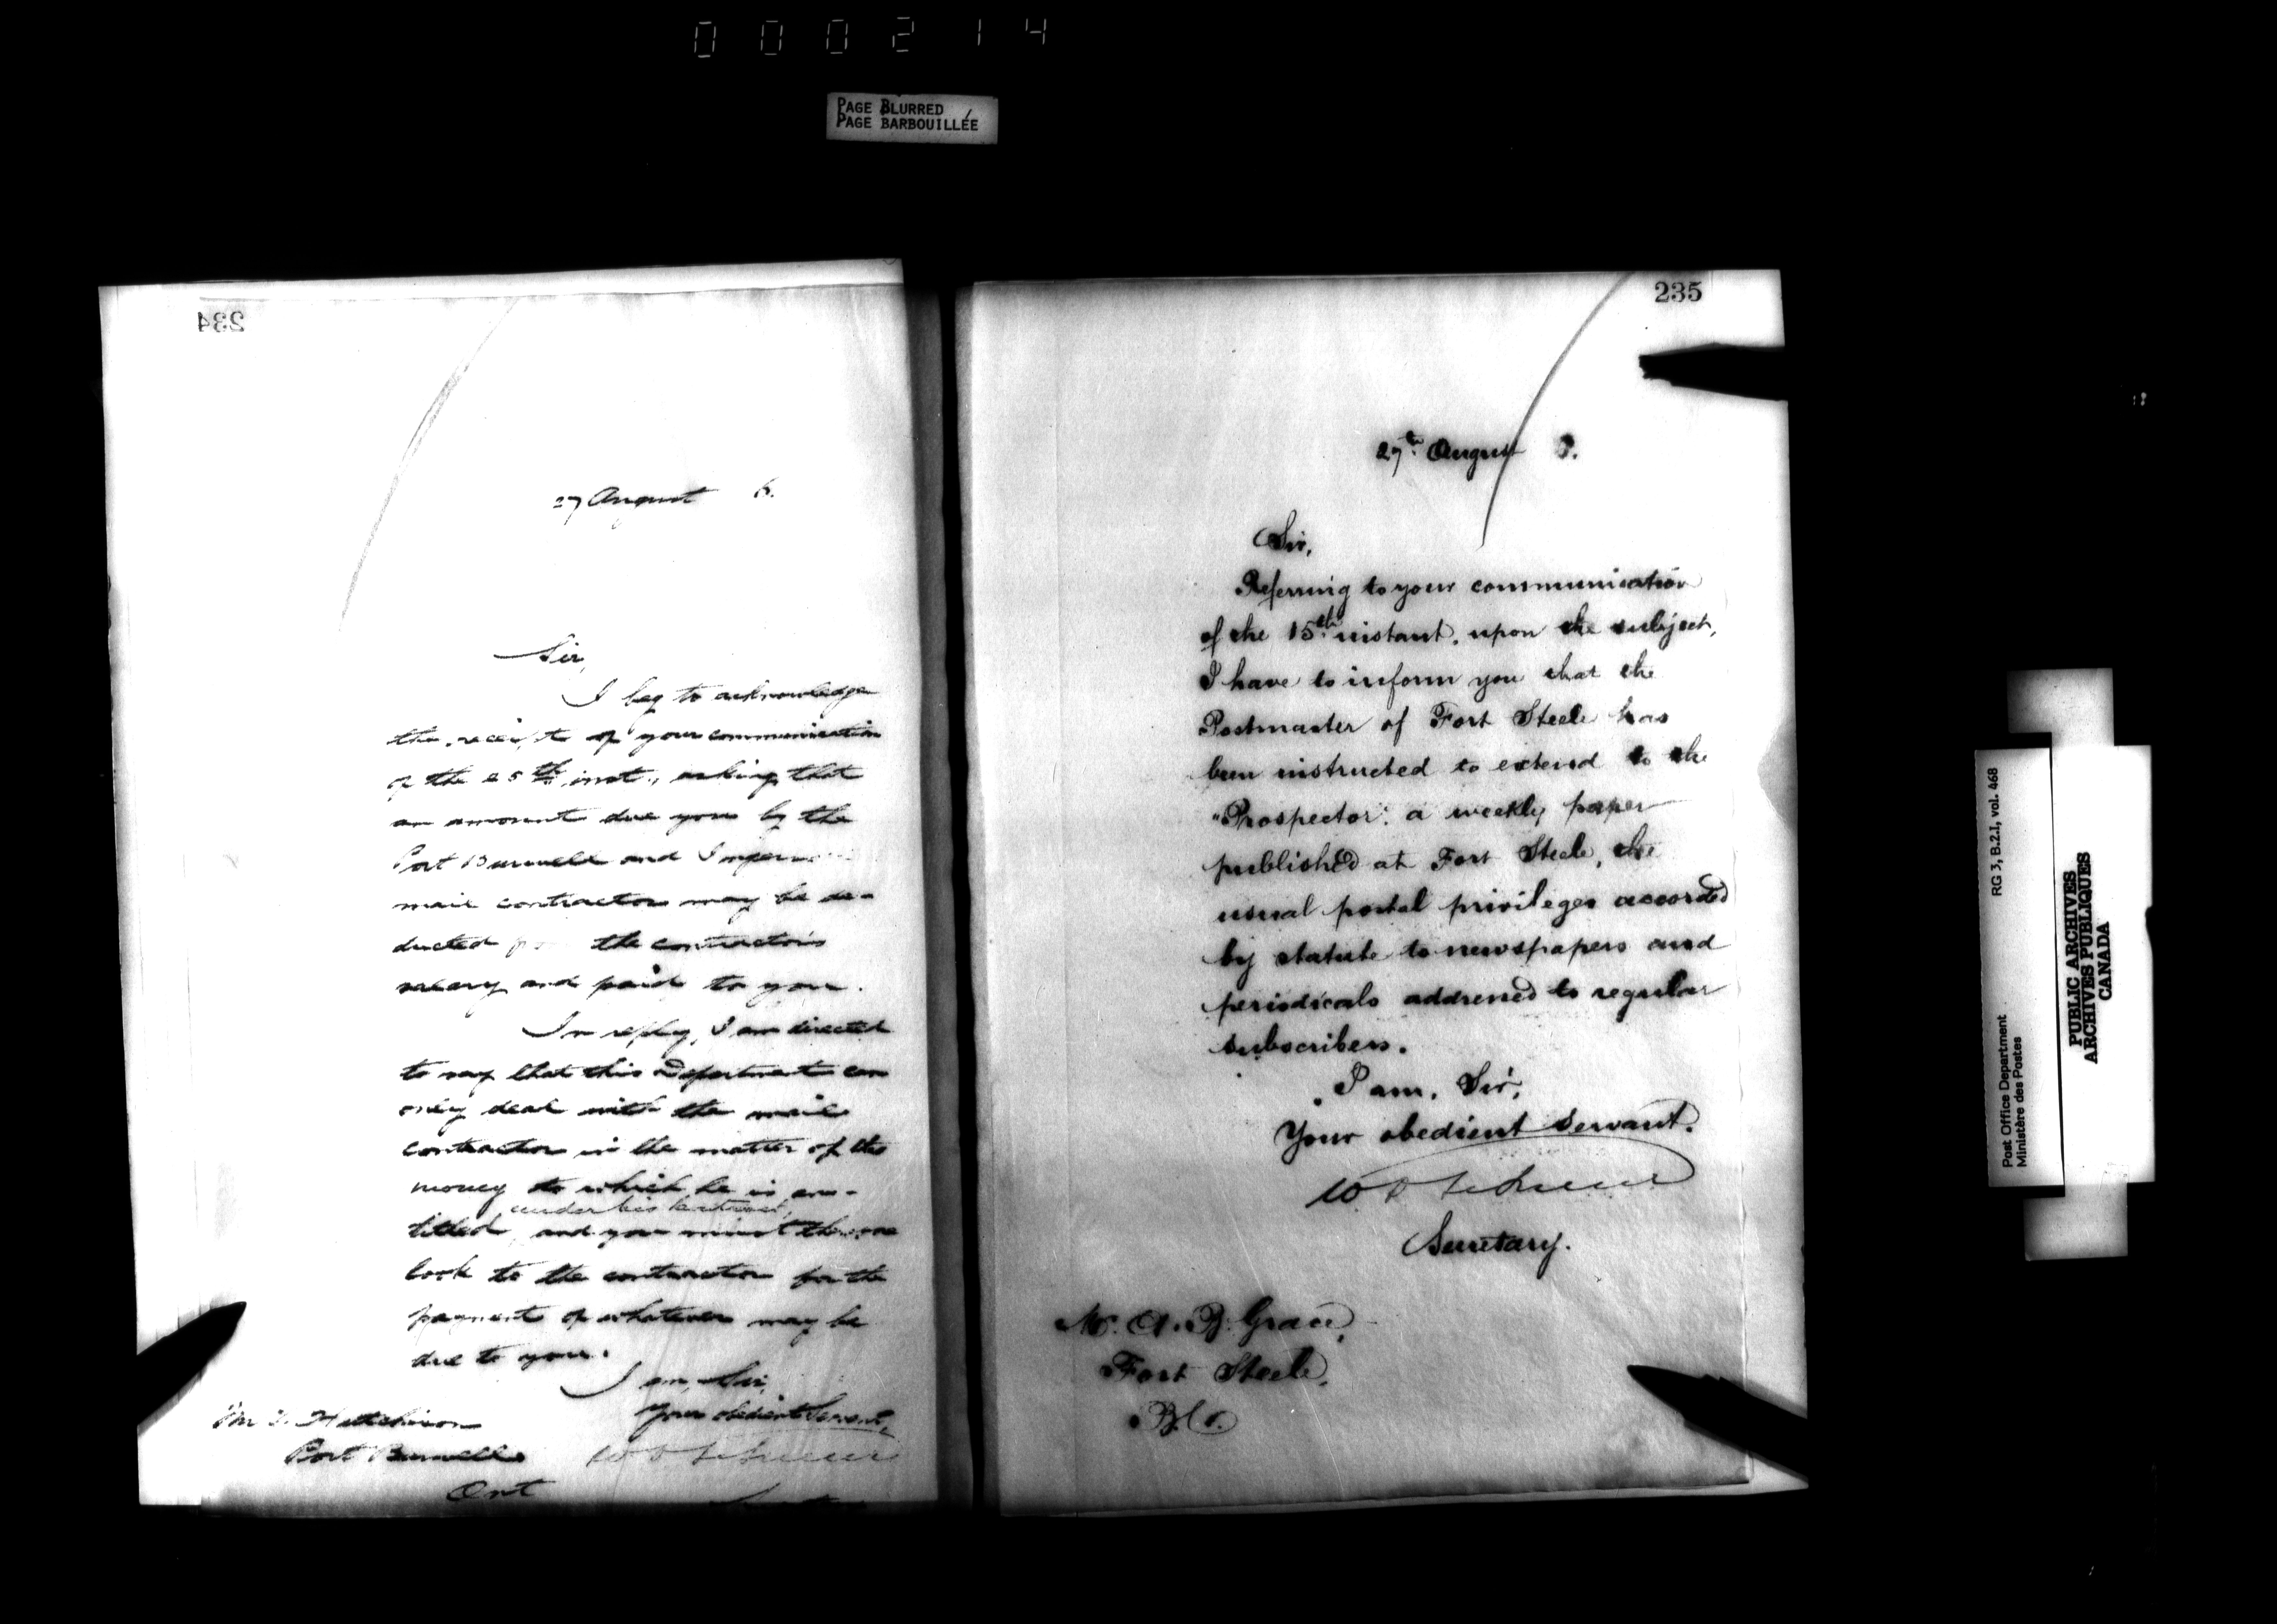 000214
PAGE BLURRED
PAGE BARBOUILLÉE
234
27 August 6.
Sir,
I beg to acknowledge
the receipt of your communication
of the 25th inst., asking that
an amount due you by the
Port Burwell and
mail contractor may be de-
ducted the contractor's
salary and paid to you.
In reply, I am directed
to say that this Department can
only deal with the mail
contractor in the matter of the
money to which he is en-
under his contract,
titled, and you must therefore
look to the contractor for the
payment of whatever may be
due to you.
I am, Sir,
Your obedient Servant,
Hutchinson
Port Burwell
Ont
235
27th August 6.
Sir,
Referring to your communication
of the 15th instant, upon the subject,
I have to inform you that the
Postmaster of Fort Steele has
been instructed to extend to the
"Prospector", a weekly paper
published at Fort Steele, the
usual postal privileges accorded
by statute to newspapers and
periodicals addressed to regular
subscribers.
I am, Sir,
Your obedient Servant.
Secretary.
Mr. A. B. Grace,
Fort Steele,
B.C.
RG 3, B.2.1, vol. 468
Post Office Department
Ministère des Postes
PUBLIC ARCHIVES
ARCHIVES PUBLIQUES
CANADA